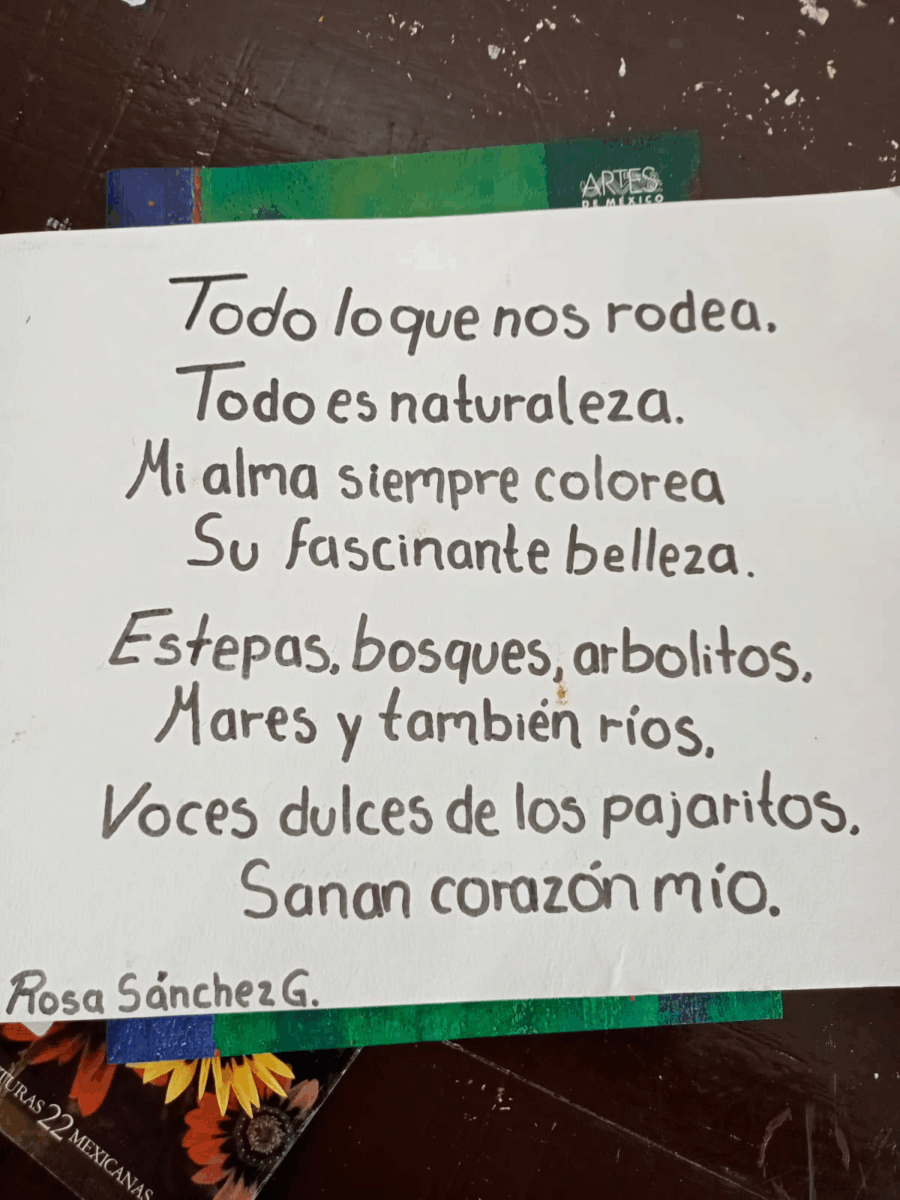 ARTES
DE MÉXICO
Todo lo que nos rodea.
Todo es naturaleza.
Mi alma siempre colorea
Su fascinante belleza.
Estepas, bosques, arbolitos,
Mares y también ríos,
Voces dulces de los pajaritos,
Sanan corazón mío.
Rosa Sánchez G.
TURAS 22 MEXICANAS